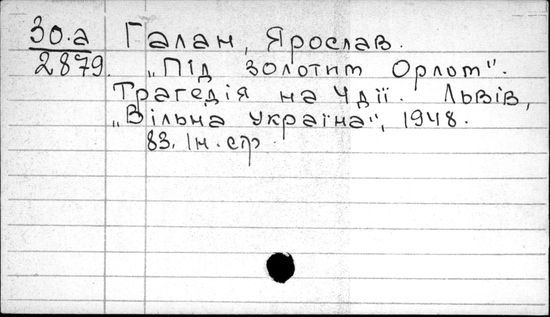 30.а Галан, Ярослав.
2879. „Під золотим Орлом".
Трагедія на 4 дії. Львів,
„Вільна Україна", 1948.
83. Ін. стр.